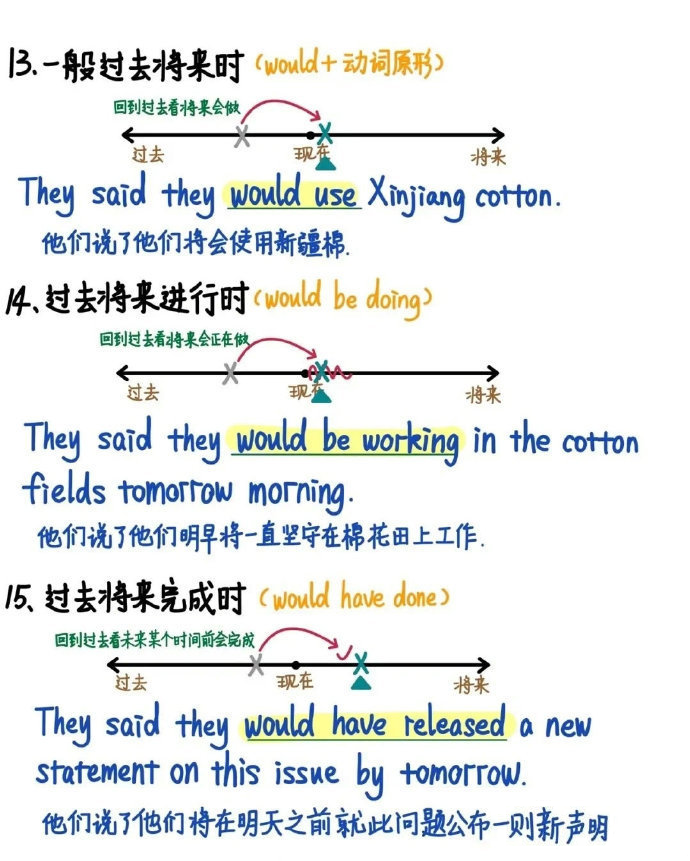 13.一般过去将来时(would+动词原形)
回到过去看将来会做
过去 现在 将来
They said they would use Xinjiang cotton.
他们说了他们将会使用新疆棉.
14、过去将来进行时(would be doing)
回到过去看将来会正在做
过去 现在 将来
They said they would be working in the cotton
fields tomorrow morning.
他们说了他们明早将一直坚守在棉花田上工作.
15、过去将来完成时(would have done)
回到过去看未来某个时间前会完成
过去 现在 将来
They said they would have released a new
statement on this issue by tomorrow.
他们说了他们将在明天之前就此问题公布一则新声明